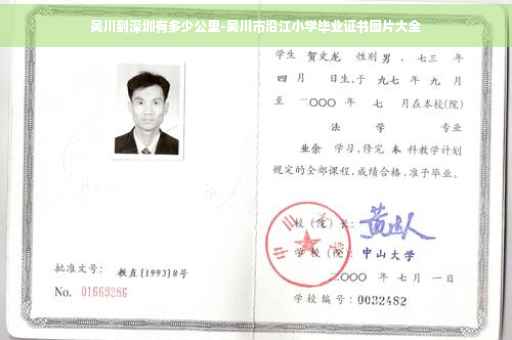 吴川到深圳有多少公里-吴川市沿江小学毕业证书图片大全
学生 贺文龙 性别 男 、 七三 年
四 月 日生,于 九七 年 九 月
至 二〇〇〇 年 七 月在本校(院)
法 学 专业
业余 学习,修完 本 科教学计划
规定的全部课程,成绩合格,准予毕业。
校(院)长:
学校(院): 中山大学
二〇〇〇 年 七 月 一 日
学校编号: 0032482
批准文号: 教直[1993]8号
No. 01663286